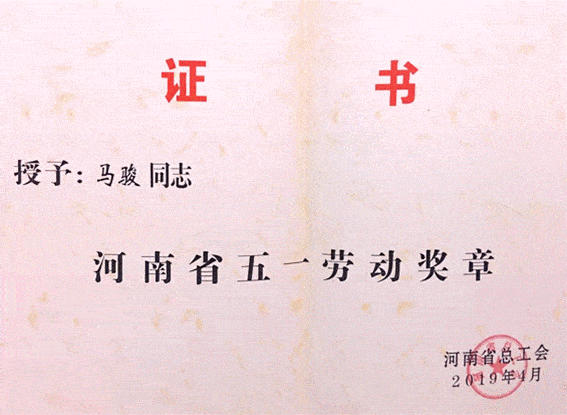 证书
授予：马骏同志
河南省五一劳动奖章
河南省总工会
2019年4月